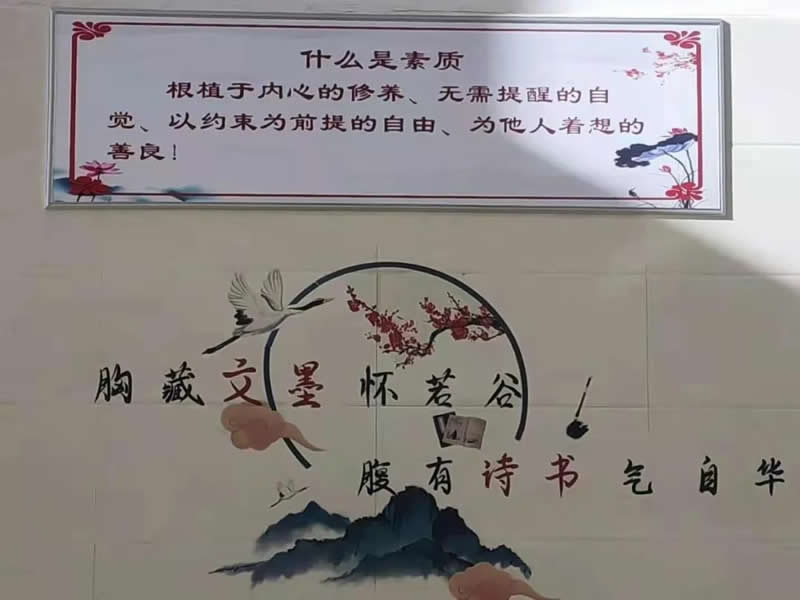 什么是素质
根植于内心的修养、无需提醒的自
觉、以约束为前提的自由、为他人着想的
善良！
胸藏文墨怀若谷
腹有诗书气自华